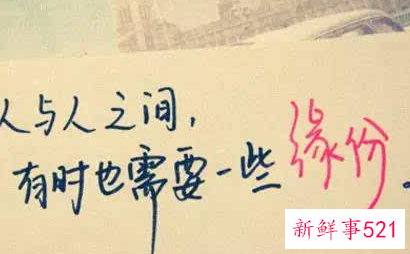 人与人之间，
有时也需要一些缘份。
新鲜事521